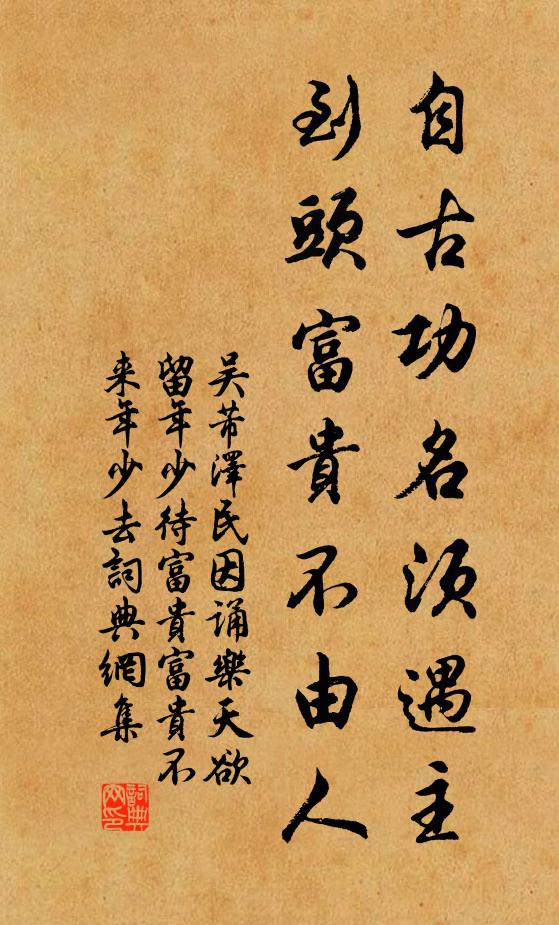 自古功名須遇主
到頭富貴不由人
吳芾澤民因誦樂天欲
留年少待富貴富貴不
来年少去詞典網集
詞典
网印